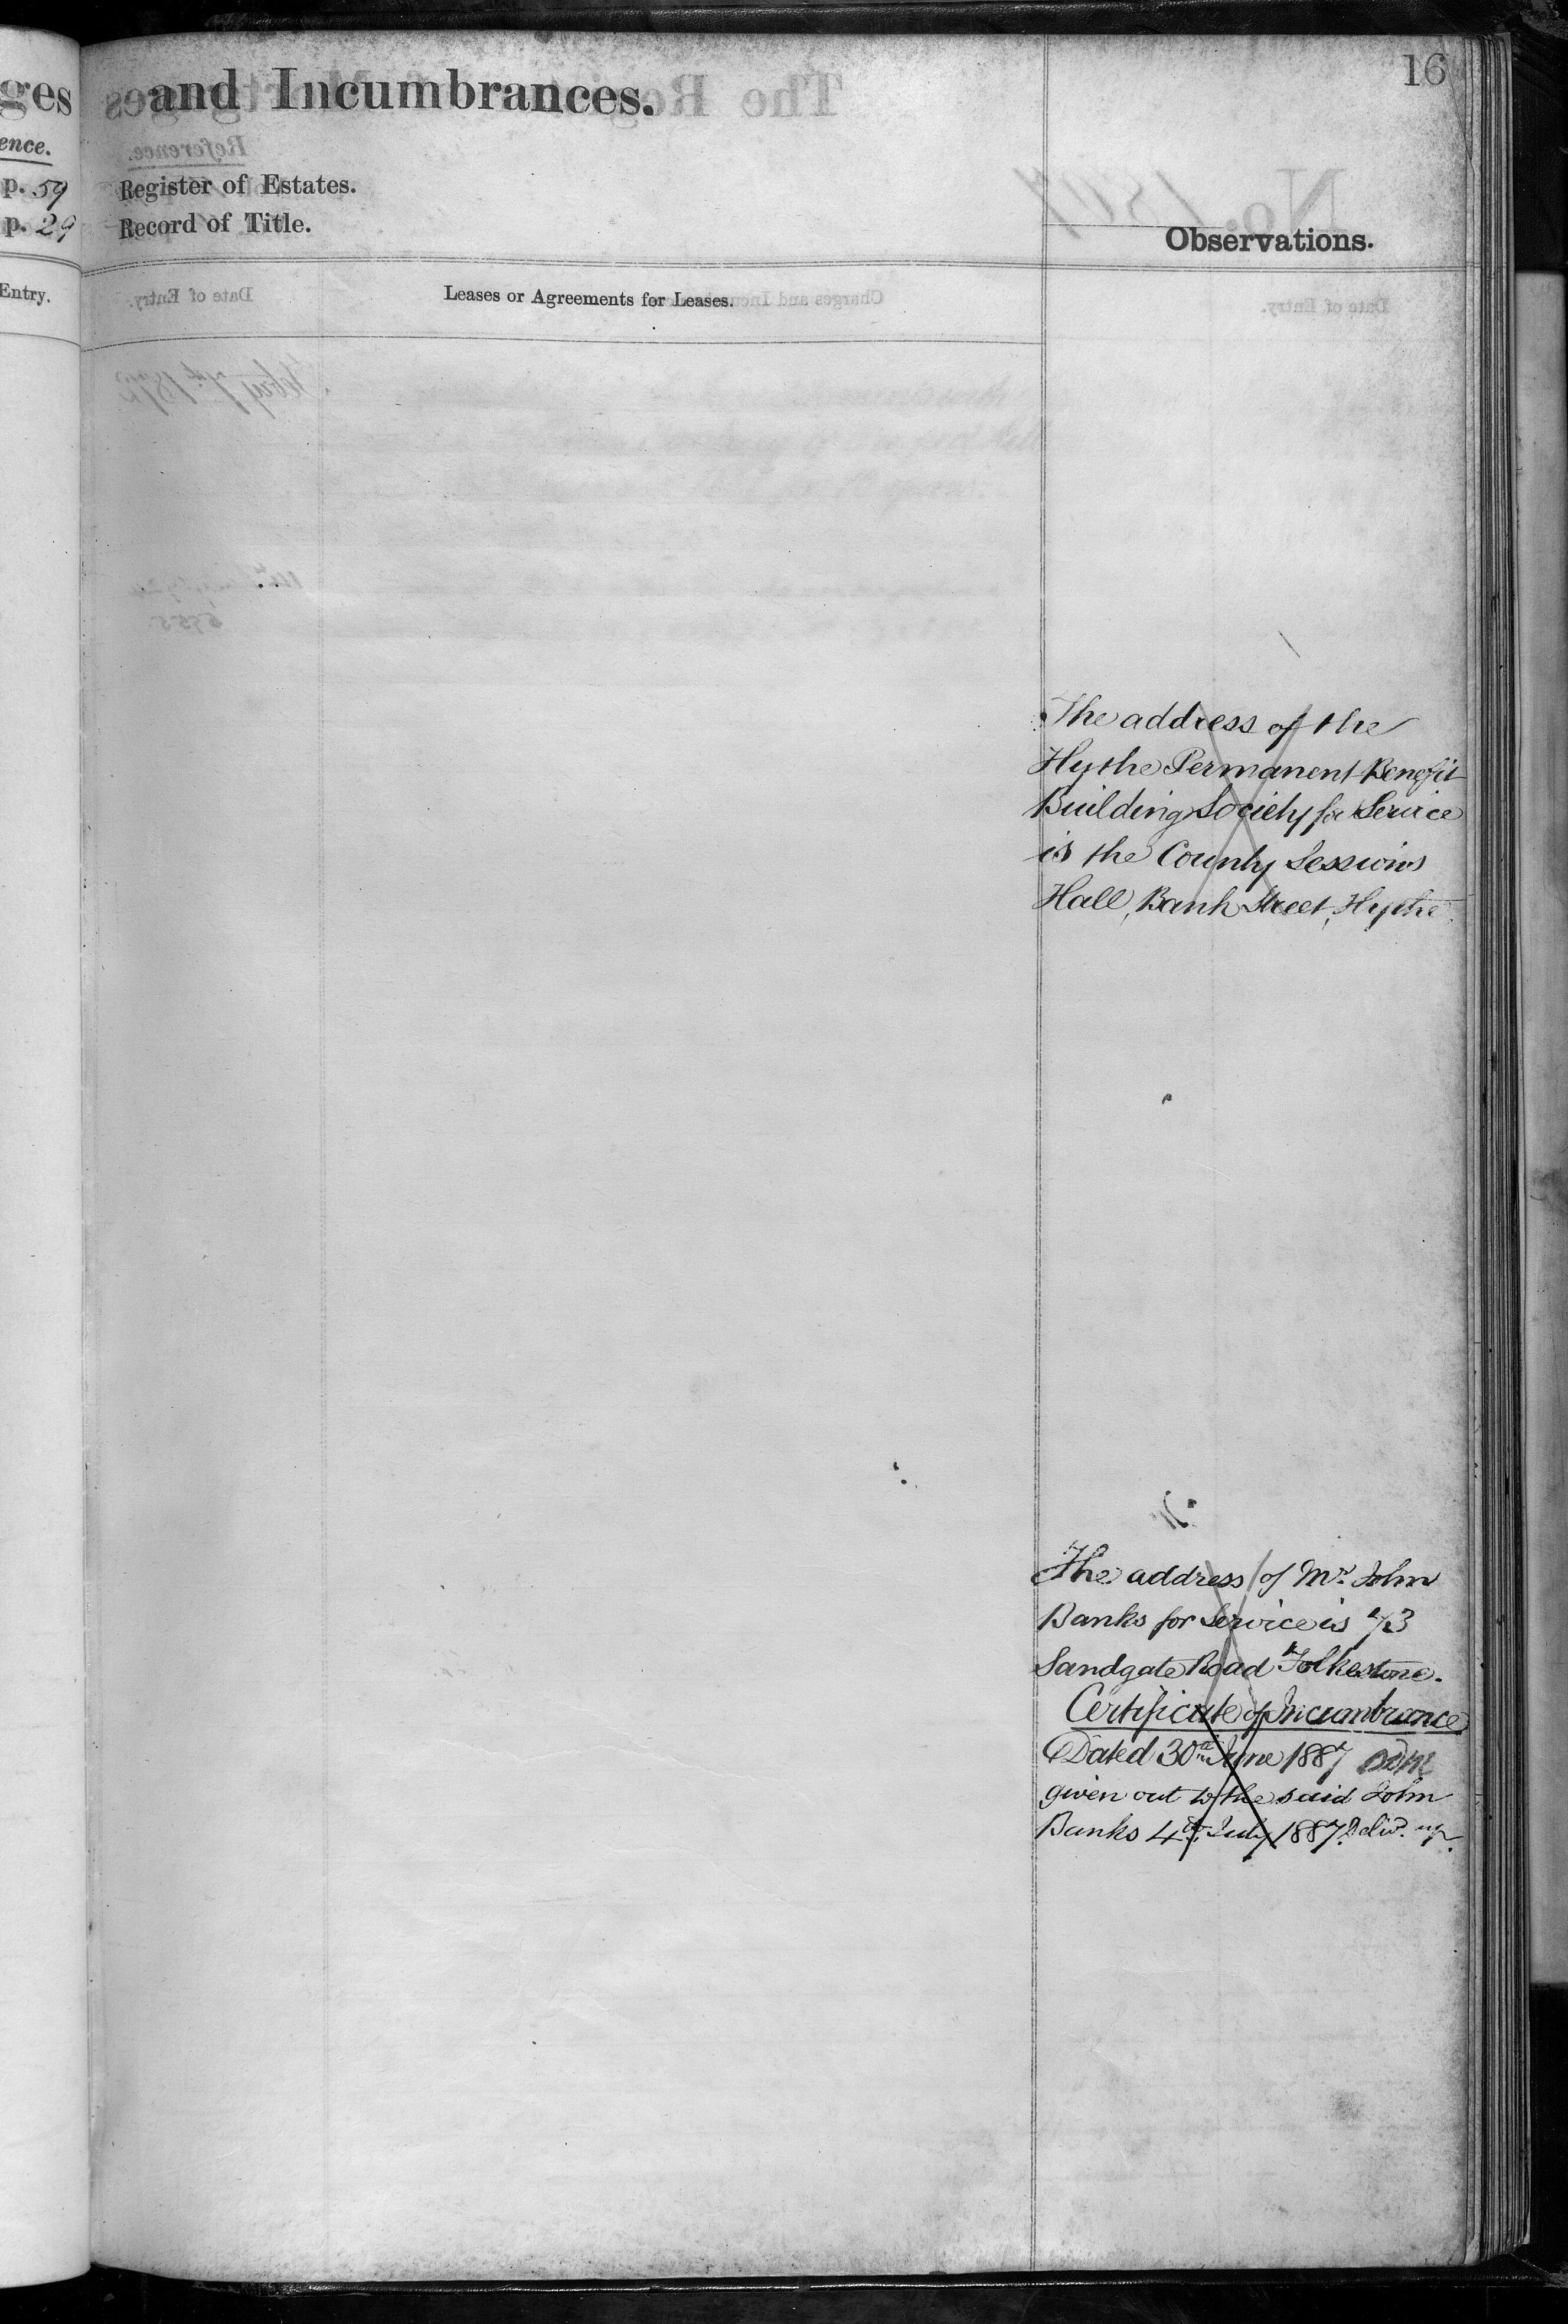 16
ges and Incumbrances.
ence.
p. 59 Register of Estates.
p. 29 Record of Title.
Observations.
Entry.
Leases or Agreements for Leases.
The address of the
Hythe Permanent Benefit
Building Society for Service
is the County Sessions
Hall, Bank Street, Hythe.
The address of Mr. John
Banks for Service is 73
Sandgate Road Folkestone.
Certificate of Incumbrance
Dated 30th June 1887
given out to the said John
Banks 4th July 1887. Delivd. up.